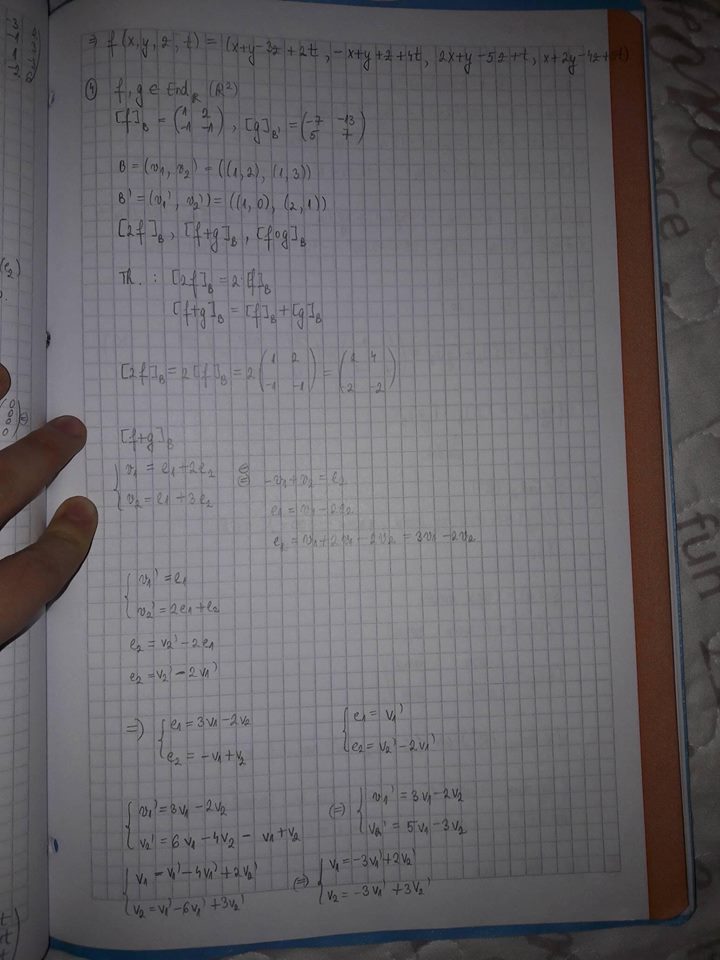 ⇒ f(x,y,z,t) = (x+y-3z+2t, -x+y+z+4t, 2x+y-5z+t, x+2y-4z+5t)
④ f,g ∈ End_R (R²)
[f]_B = (1 2; -1 -1), [g]_B' = (-7 -13; 5 7)
B = (v1, v2) = ((1,2), (1,3))
B' = (v1', v2') = ((1,0), (2,1))
[2f]_B, [f+g]_B, [f∘g]_B
Th.: [2f]_B = 2·[f]_B
[f+g]_B = [f]_B + [g]_B
[2f]_B = 2[f]_B = 2 (1 2; -1 -1) = (2 4; -2 -2)
[f+g]_B
{ v1 = e1 + 2e2 ⇔ -v1+v2 = e2
{ v2 = e1 + 3e2 e1 = v1 - 2e2
e1 = v1+2v1-2v2 = 3v1-2v2
{ v1' = e1
{ v2' = 2e1+e2
e2 = v2' - 2e1
e2 = v2' - 2v1'
⇒ { e1 = 3v1-2v2 { e1 = v1'
{ e2 = -v1+v2 { e2 = v2'-2v1'
{ v1' = 3v1-2v2 (=) { v1' = 3v1-2v2
{ v2' = 6v1-4v2 - v1+v2 { v2' = 5v1-3v2
{ v1 = v1'-4v1'+2v2' (=) { v1 = -3v1'+2v2'
{ v2 = v1'-6v1'+3v2' { v2 = -3v1'+3v2'
fun